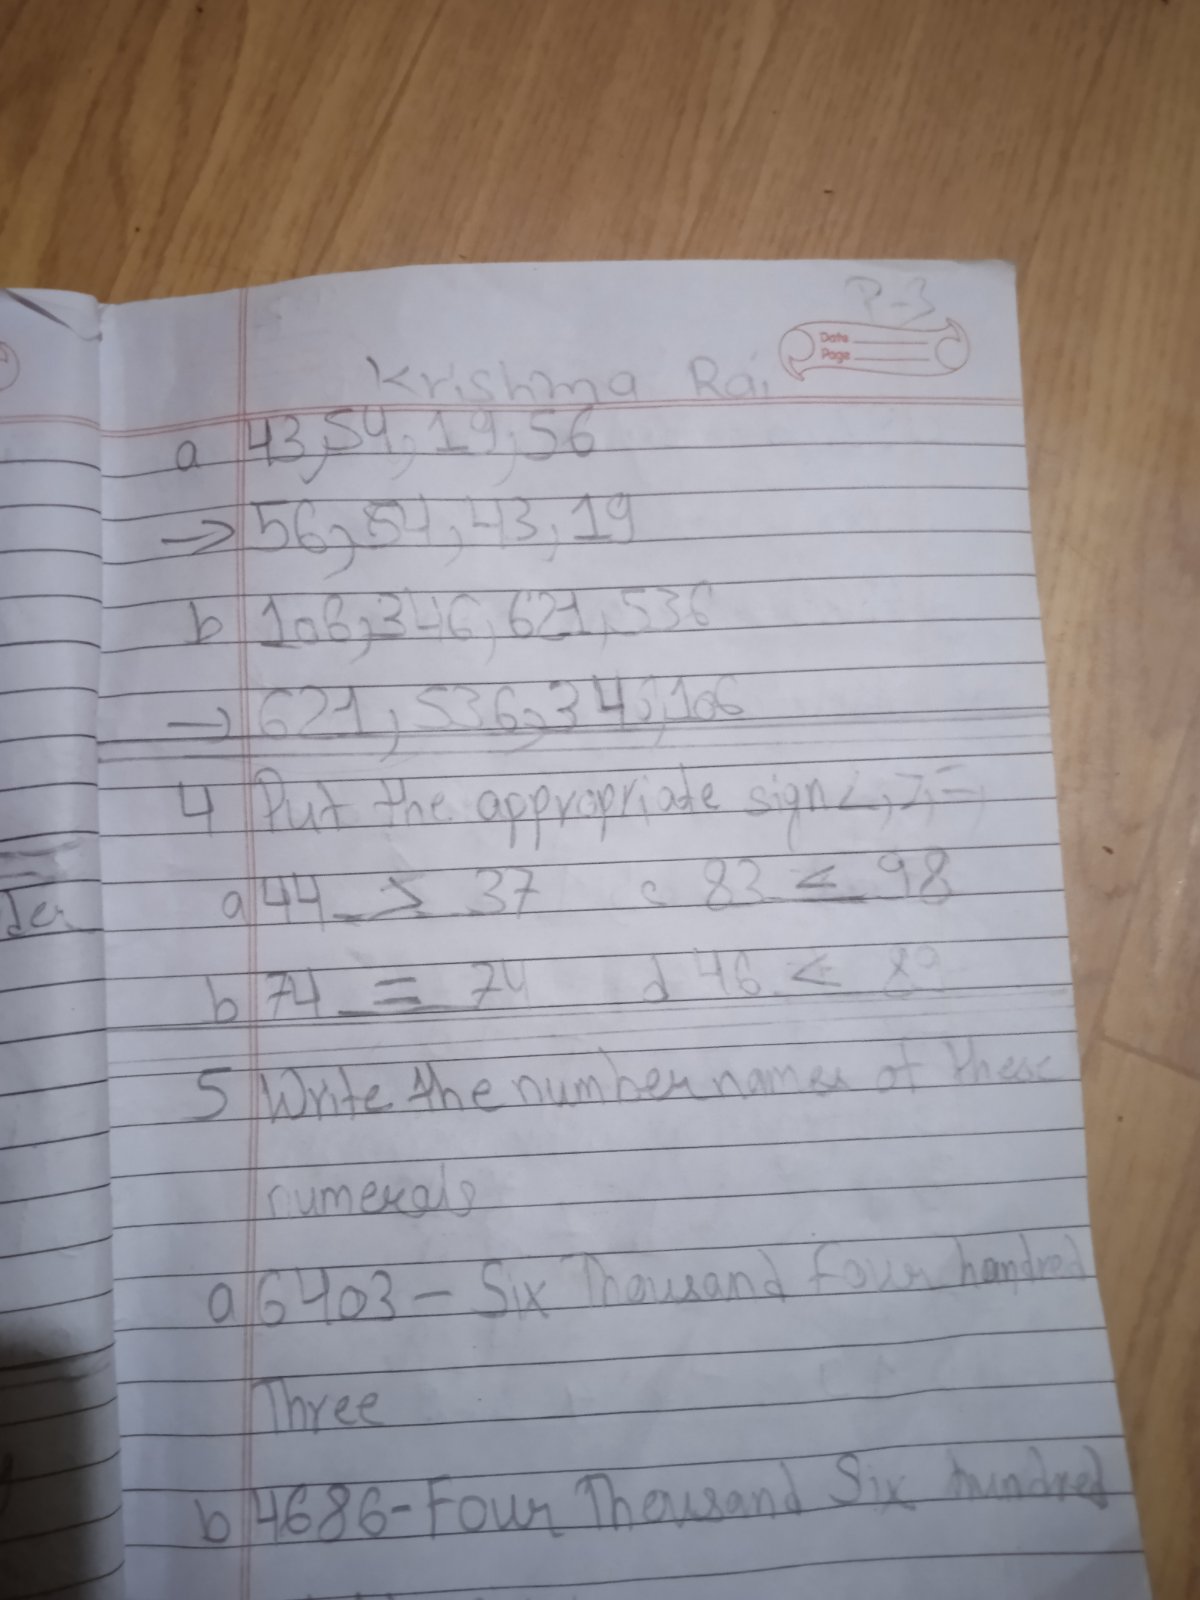 P-3
Date
Page
Krishma Rai
a 43,54,19,56
→ 56,54,43,19
b 106,346,621,536
→ 621,536,346,106
4 Put the appropriate sign <,>,=,
a 44 > 37 c 83 < 98
b 74 = 74 d 46 < 89
der
5 Write the number names of these
numerals
a 6403 – Six Thousand Four hundred
Three
b 4686 - Four Thousand Six hundred